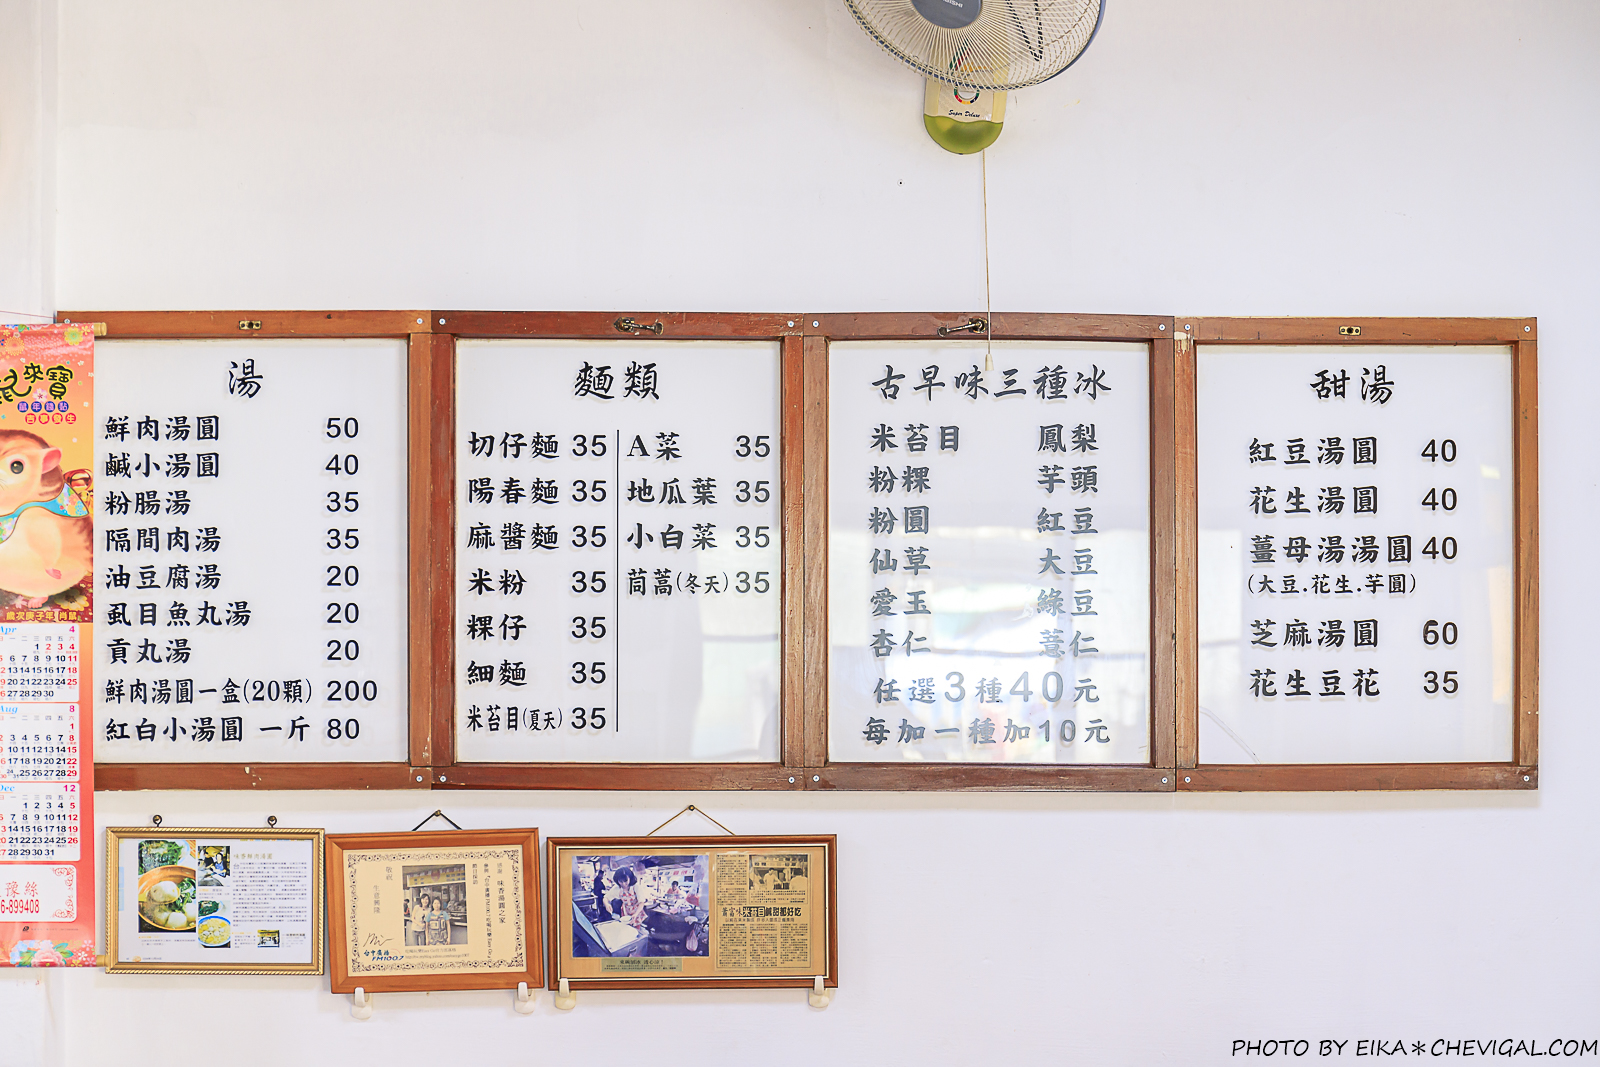 Super Deluxe
湯
鮮肉湯圓 50
鹹小湯圓 40
粉腸湯 35
隔間肉湯 35
油豆腐湯 20
虱目魚丸湯 20
貢丸湯 20
鮮肉湯圓一盒(20顆) 200
紅白小湯圓 一斤 80
麵類
切仔麵 35
陽春麵 35
麻醬麵 35
米粉 35
粿仔 35
細麵 35
米苔目(夏天) 35
A菜 35
地瓜葉 35
小白菜 35
茼蒿(冬天) 35
古早味三種冰
米苔目 鳳梨
粉粿 芋頭
粉圓 紅豆
仙草 大豆
愛玉 綠豆
杏仁 薏仁
任選3種40元
每加一種加10元
甜湯
紅豆湯圓 40
花生湯圓 40
薑母湯湯圓 40
(大豆.花生.芋圓)
芝麻湯圓 60
花生豆花 35
來寶
歲次庚子年 肖鼠
Apr 4
Aug 8
Dec 12
豫絲
6-899408
味香湯圓之家
敬祝
生意興隆
台中廣播
FM100.7
PHOTO BY EIKA＊CHEVIGAL.COM